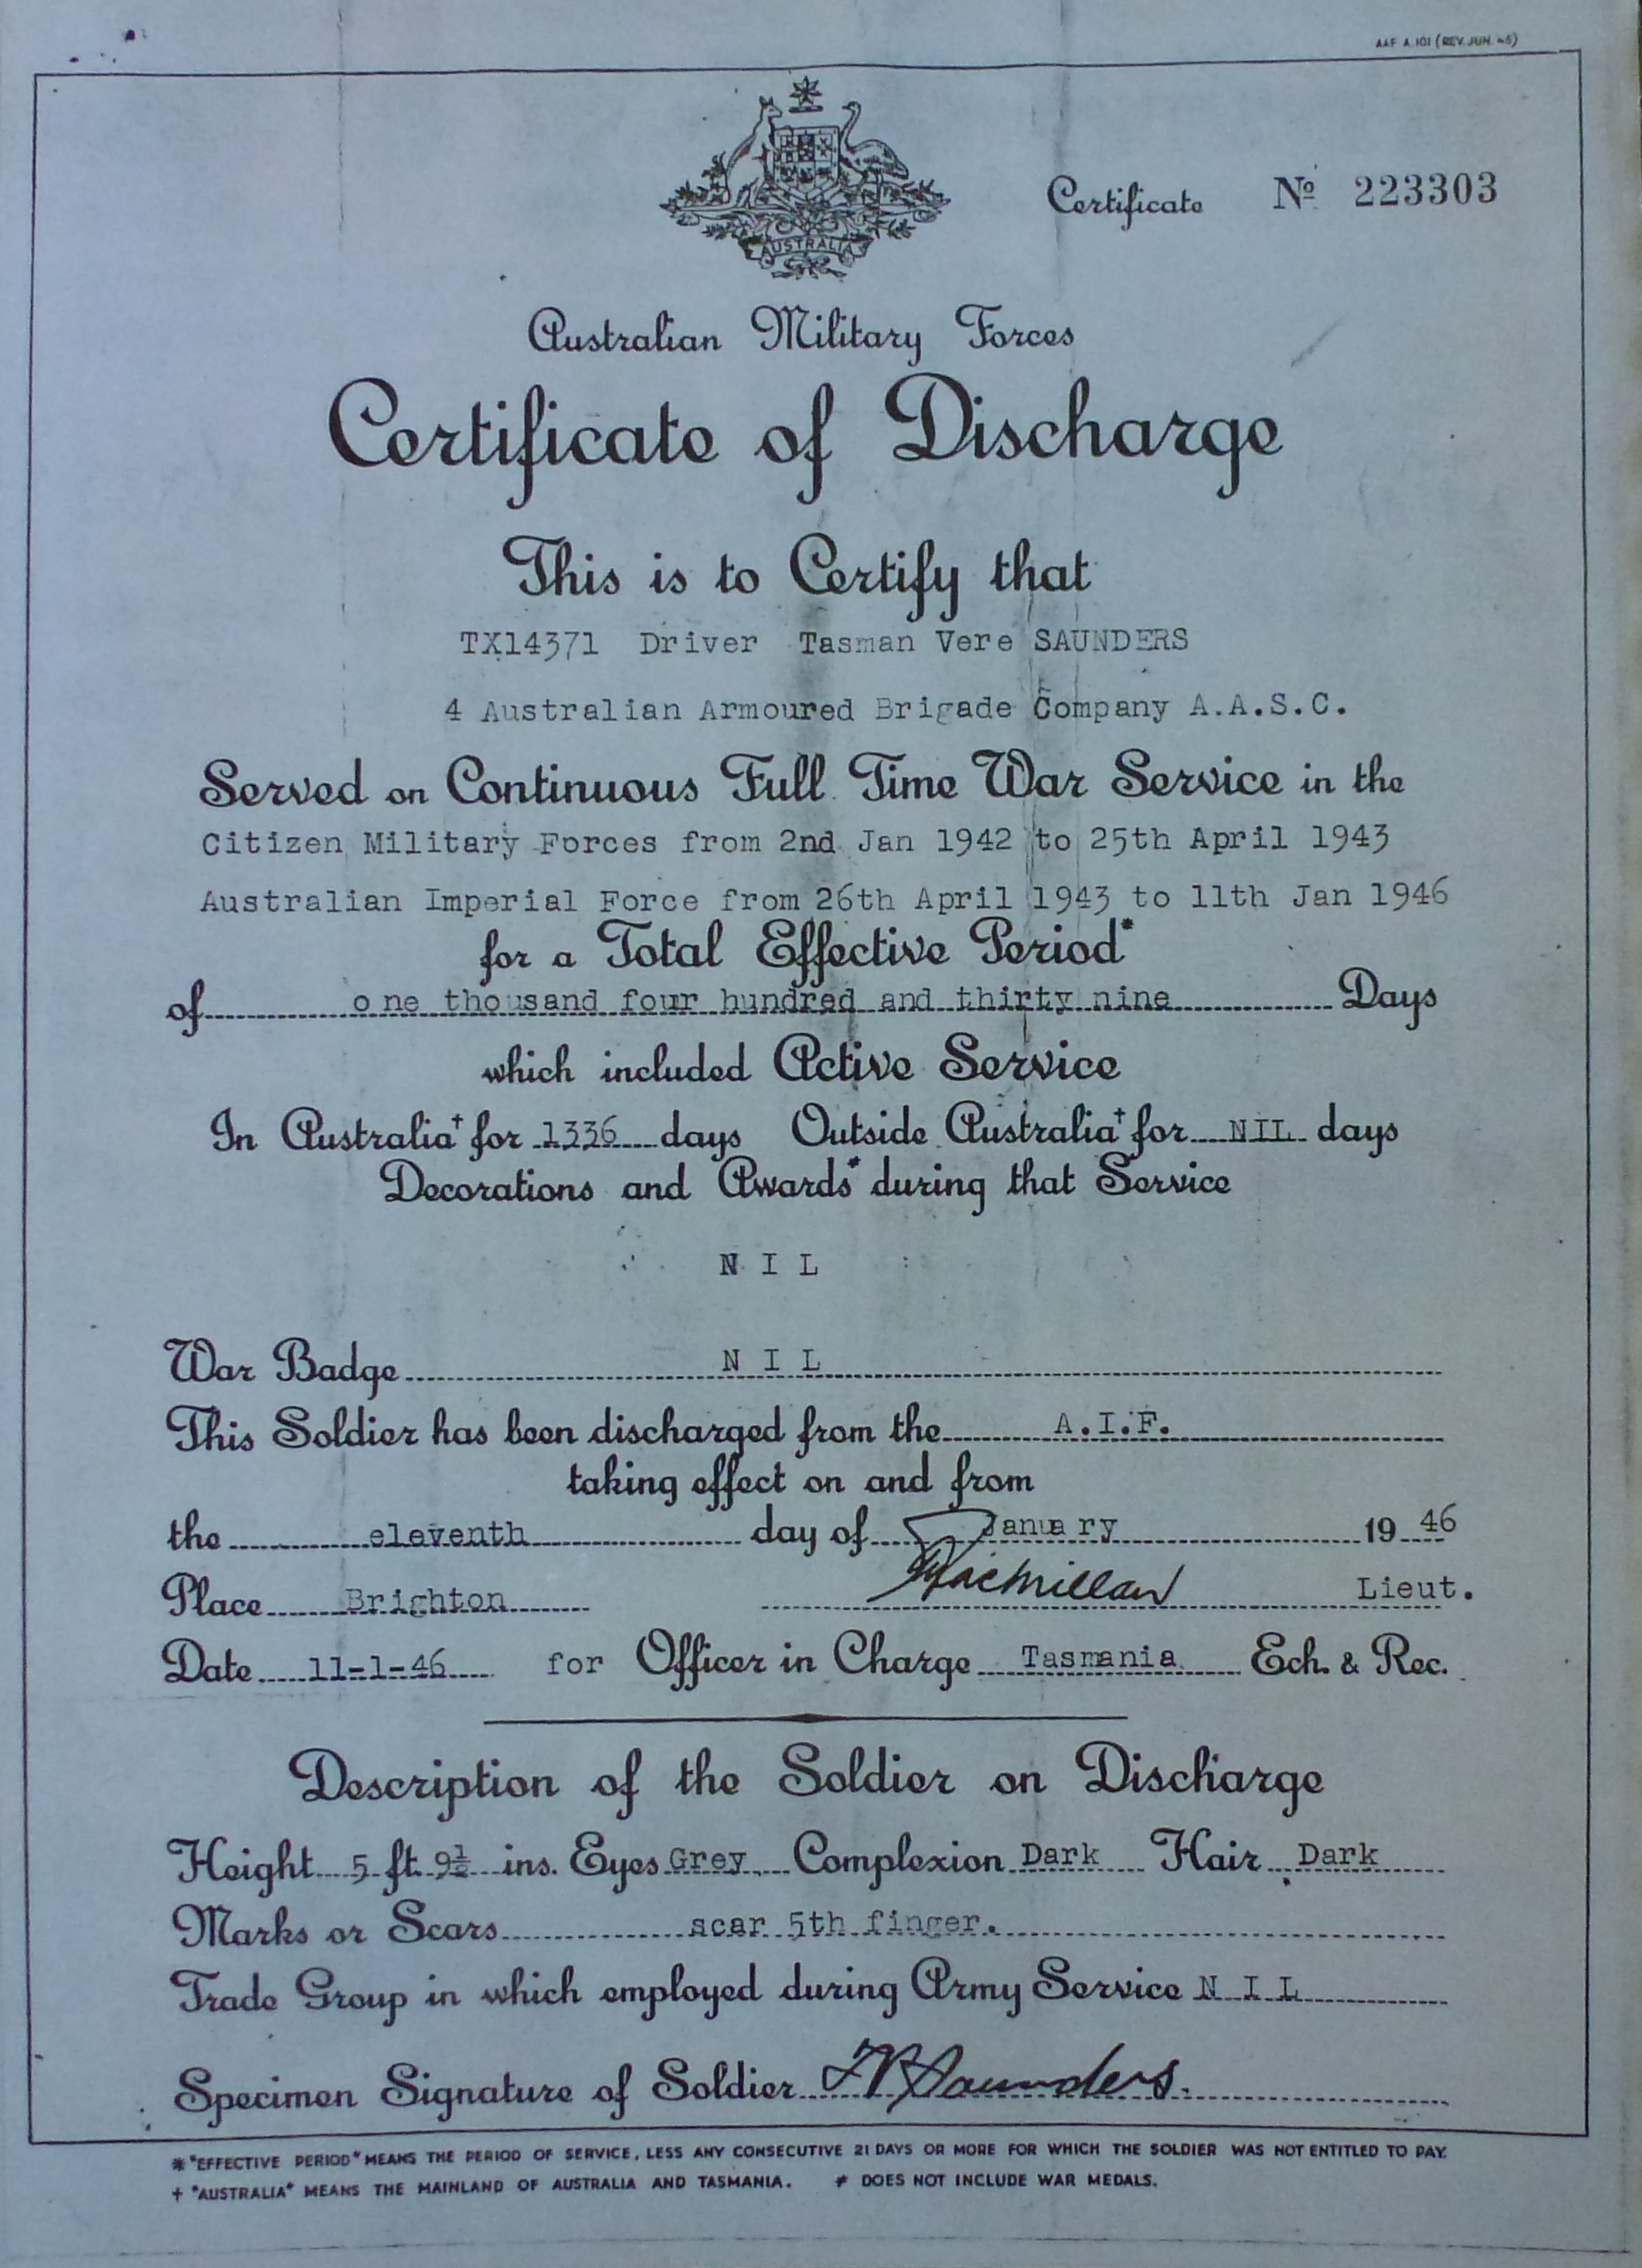 AAF A.101 (REV. JUN. 45)
AUSTRALIA
Certificate No 223303
Australian Military Forces
Certificate of Discharge
This is to Certify that
TX14371 Driver Tasman Vere SAUNDERS
4 Australian Armoured Brigade Company A.A.S.C.
Served on Continuous Full Time War Service in the
Citizen Military Forces from 2nd Jan 1942 to 25th April 1943
Australian Imperial Force from 26th April 1943 to 11th Jan 1946
for a Total Effective Period*
of one thousand four hundred and thirty nine Days
which included Active Service
In Australia† for 1336 days Outside Australia† for NIL days
Decorations and Awards≠ during that Service
N I L
War Badge N I L
This Soldier has been discharged from the A.I.F.
taking effect on and from
the eleventh day of January 19 46
Place Brighton Macmillan Lieut.
Date 11-1-46 for Officer in Charge Tasmania Ech. & Rec.
Description of the Soldier on Discharge
Height 5 ft. 9½ ins. Eyes Grey Complexion Dark Hair Dark
Marks or Scars scar 5th finger.
Trade Group in which employed during Army Service N I L
Specimen Signature of Soldier TV Saunders.
* "EFFECTIVE PERIOD" MEANS THE PERIOD OF SERVICE, LESS ANY CONSECUTIVE 21 DAYS OR MORE FOR WHICH THE SOLDIER WAS NOT ENTITLED TO PAY.
† "AUSTRALIA" MEANS THE MAINLAND OF AUSTRALIA AND TASMANIA. ≠ DOES NOT INCLUDE WAR MEDALS.